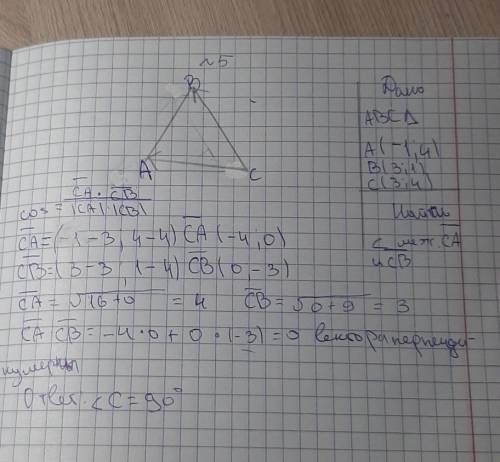 №5
B
A
C
Дано
ABCΔ
A(-1;4)
B(3;1)
C(3;4)
Найти
∠ меж. CA
и CB
cos = CA · CB / |CA|·|CB|
CA = (-1-3; 4-4) CA (-4; 0)
CB = (3-3; 1-4) CB (0; -3)
CA = √16+0 = 4 CB = √0+9 = 3
CA CB = -4·0 + 0·(-3) = 0 вектора перпенди-
кулярны
Ответ: <C = 90°